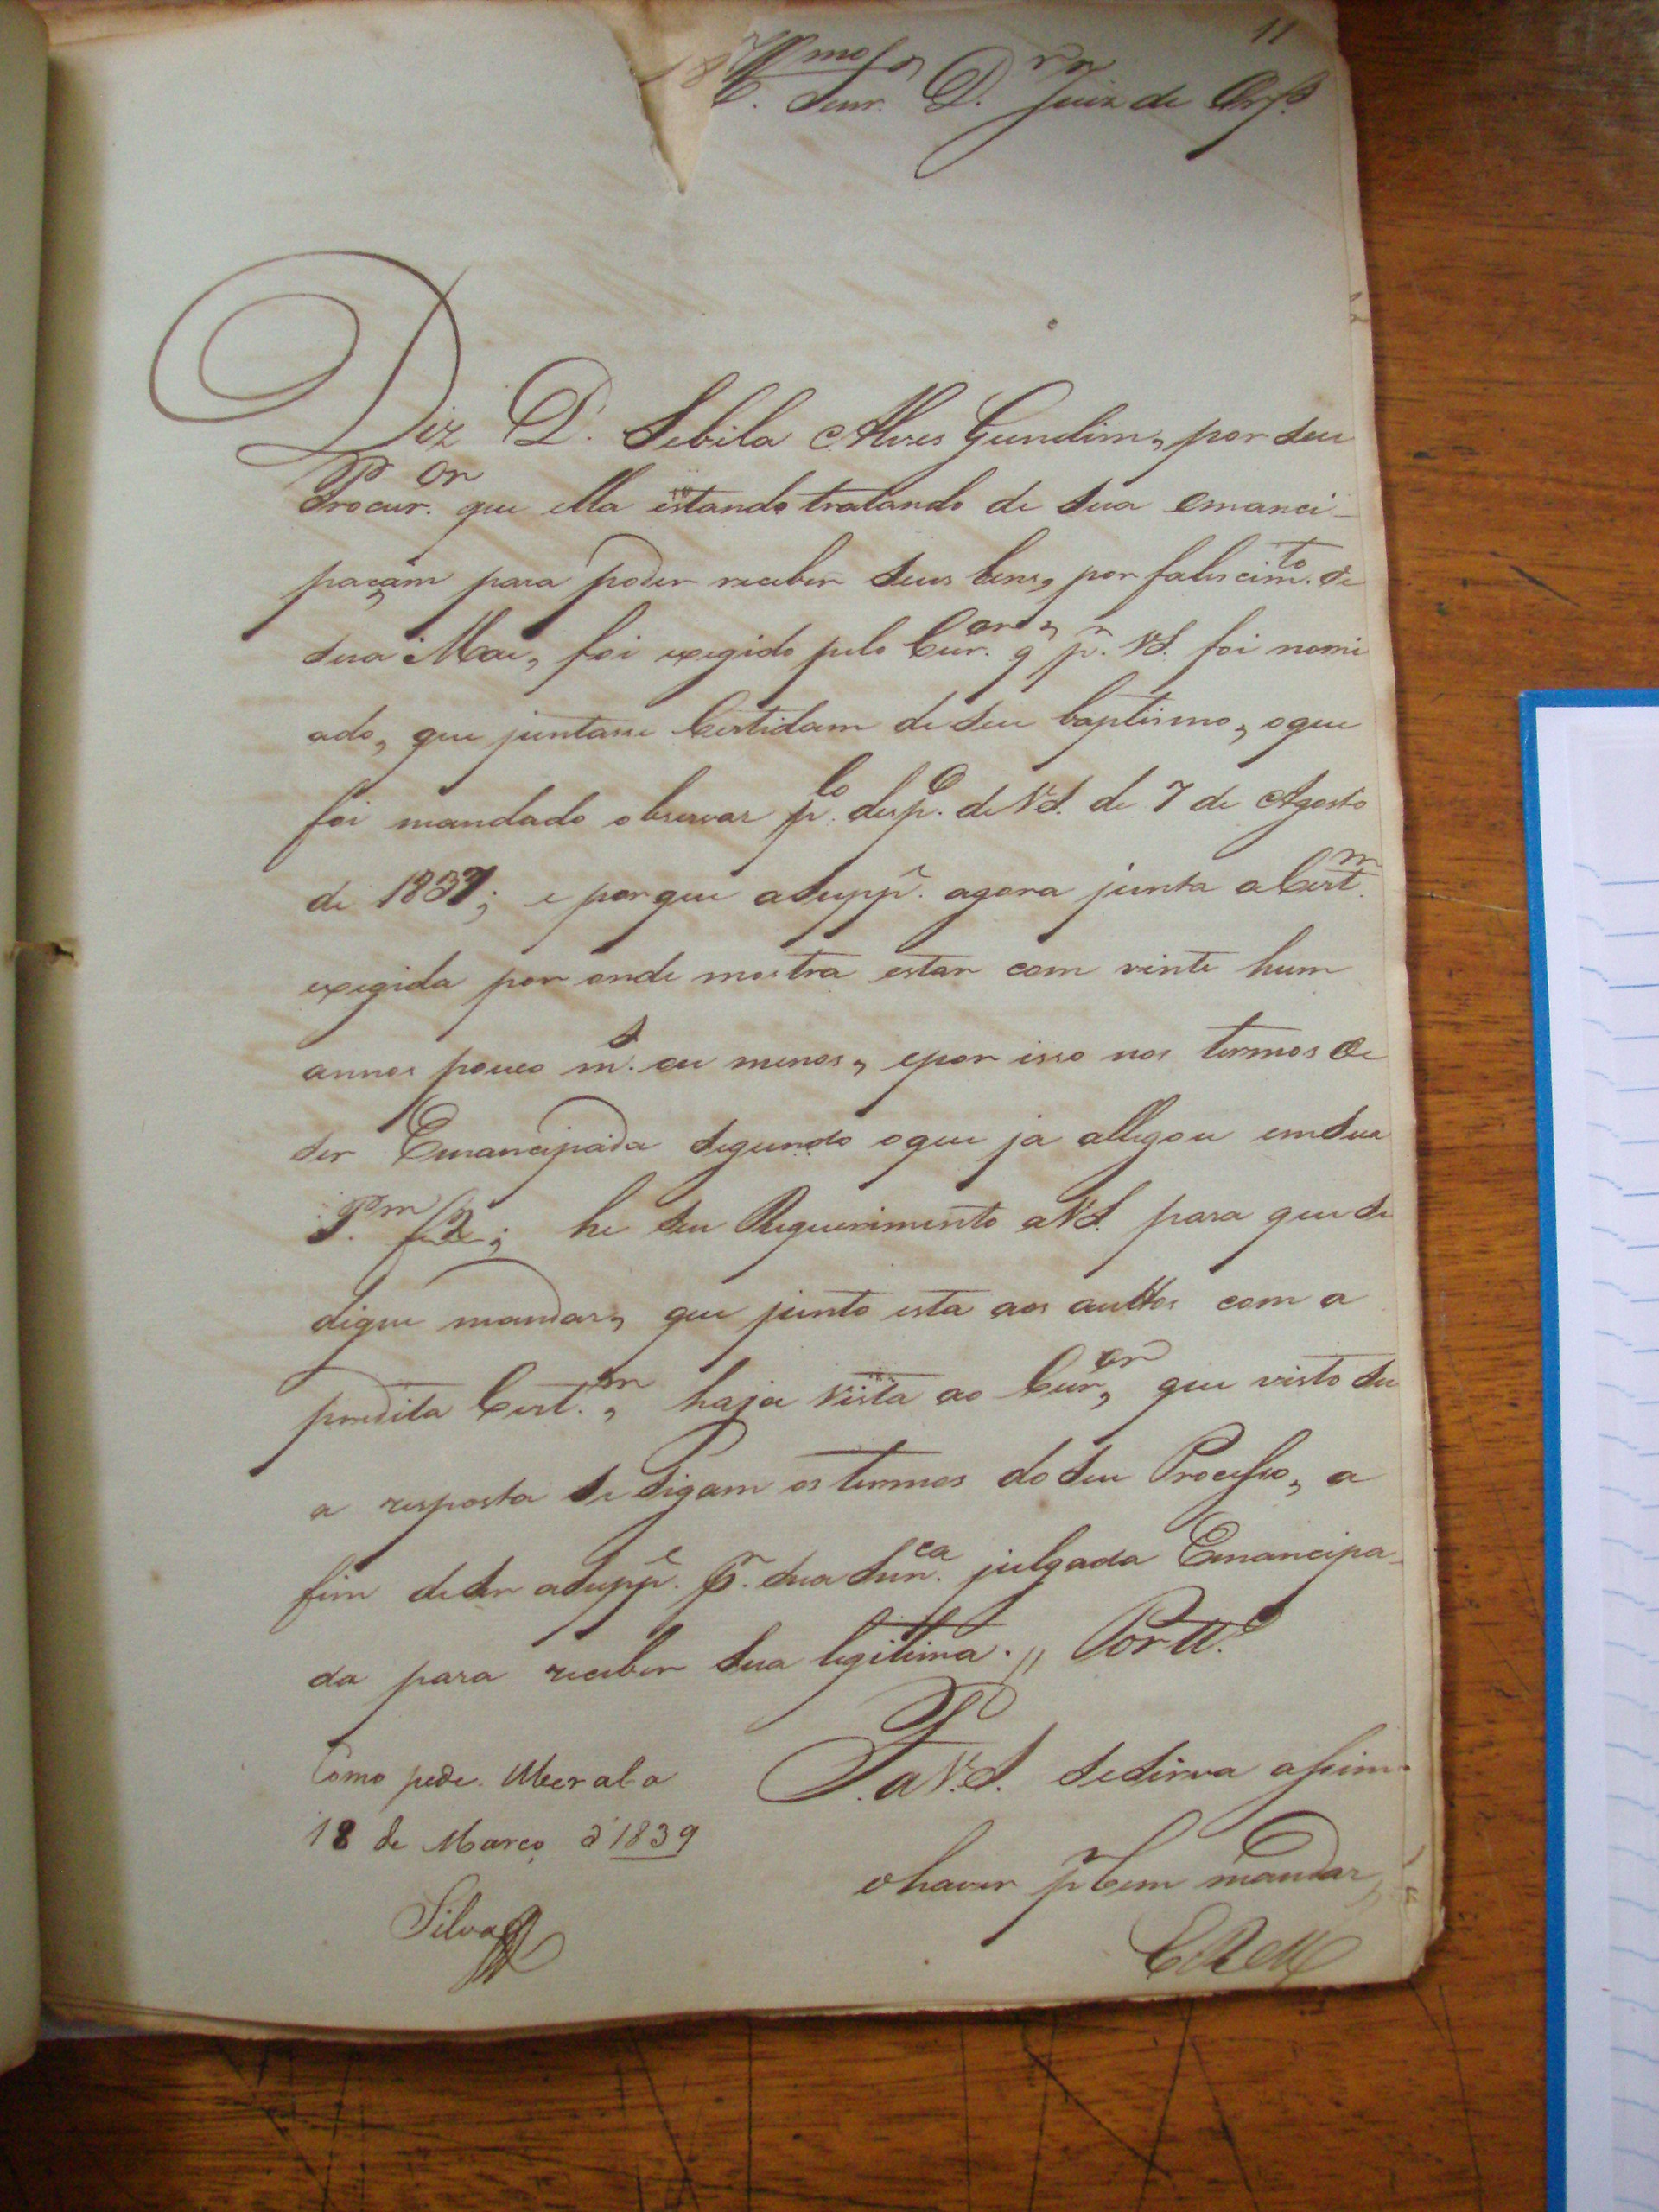 11
Illmo Senr. D.r Juiz de Orfs.
Diz D. Sebila Alves Gundim, por seu
Procur.or que ella estando tratando de sua emanci-
paçam para poder receber seus bens, por falescim.to de
sua Mai, foi exegido pelo Cur.or, q' p.r VS. foi nomi
ado, que juntasse Certidam de seu baptismo, o que
foi mandado observar p.lo desp.o de VS. de 7 de Agosto
de 1837; e porque a Supp.e agora junta a Cert.m
exegida por onde mostra estar com vinte hum
annos pouco m.s ou menos, e por isso nos termos de
ser Emancipada segundo o que ja allegou em sua
P.m f 2; he seu Requerimento a VS. para que se
digne mandar, que junto esta aos auttos com a
predita Cert.m, haja vista ao Cur.or, que visto su
a resposta se sigam os termos do seu Processo, a
fim de ser a Supp.e p.r sua Sen.ca julgada Emancipa-
da para receber sua legitima. // Por tt.o
P. a V.S. se sirva assim
o haver p.r bem mandar
E R M
Como pede. Uberaba
18 de Março d' 1839
Silva